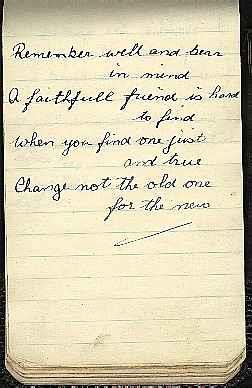 Remember well and bear
in mind
A faithfull friend is hard
to find
when you find one just
and true
Change not the old one
for the new